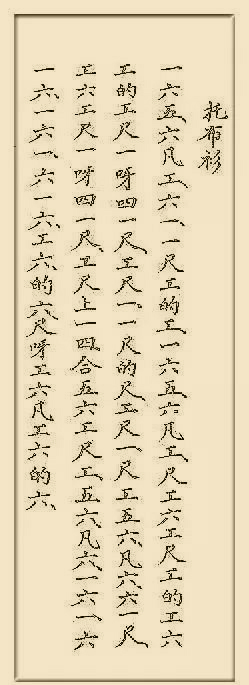 托布衫
一六五六凡工六一一尺工的工一六五六凡工尺工六工尺工的工六
工的工尺一呀四一尺工尺一一尺的尺工尺一尺工五六凡六六一尺
工六工尺一呀四一尺工尺上一四合五六工尺工五六凡六一六一六
一六一六一六一六工六的六尺呀工六凡工六的六